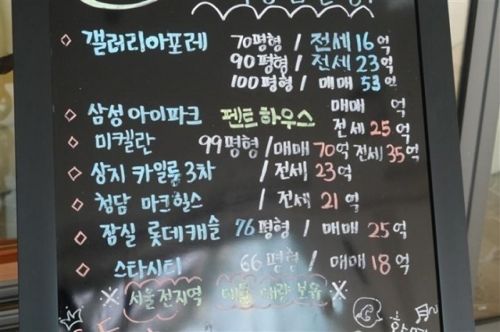 갤러리아포레 70평형 / 전세 16억
90평형 / 전세 23억
100평형 / 매매 53억
삼성 아이파크 펜트하우스 매매 억
전세 25억
미켈란 99평형 / 매매 70억 전세 35억
상지 카일룸 3차 / 전세 23억
청담 마크힐스 / 전세 21억
잠실 롯데캐슬 76평형 / 매매 25억
스타시티 66평형 / 매매 18억
※ 서울 전지역 매물 대량 보유 ※